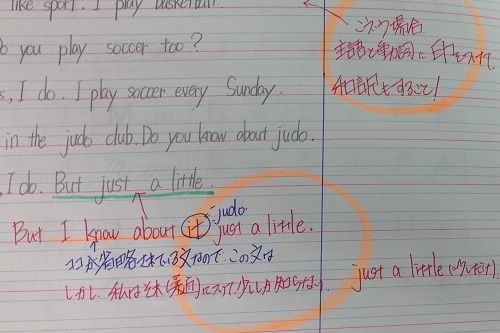 like sport. I play basketball.
Do you play soccer too?
s, I do. I play soccer every Sunday.
in the judo club. Do you know about judo.
I do. But just a little.
こういう場合
主語と動詞に 印をつけて
和訳もすること!
judo
But I know about it just a little.
ココが省略されている文なので、この文は
しかし 私はそれ(柔道)について少ししか知らない
just a little (少しだけ)